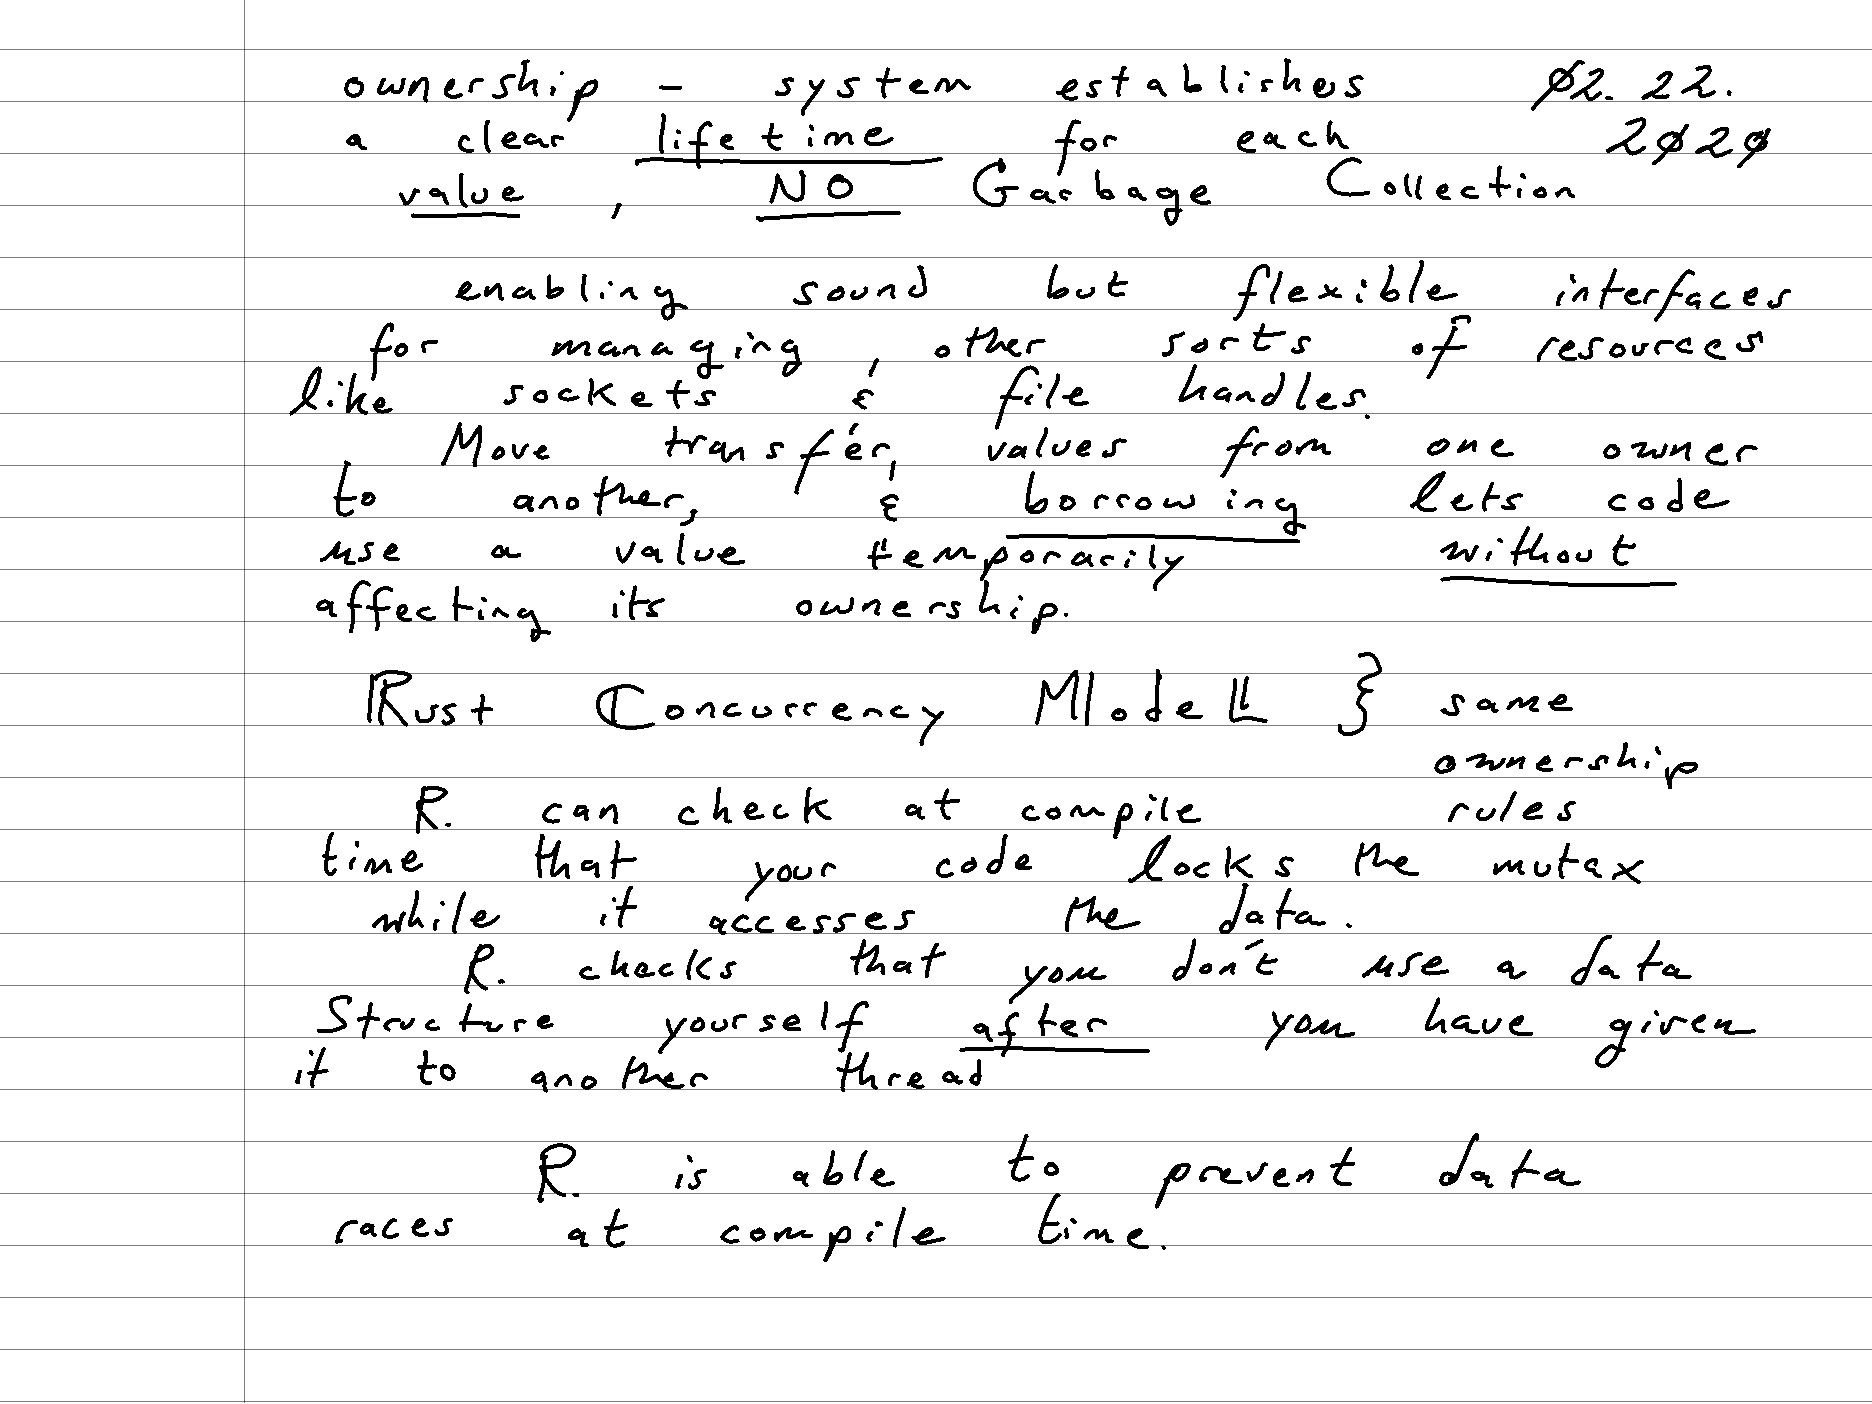 ownership - system establishes 02. 22.
a clear lifetime for each 2020
value, NO Garbage Collection
enabling sound but flexible interfaces
for managing, other sorts of resources
like sockets & file handles.
Move transfer, values from one owner
to another, & borrowing lets code
use a value temporarily without
affecting its ownership.
Rust Concurrency Model } same
ownership
R. can check at compile rules
time that your code locks the mutax
while it accesses the data.
R. checks that you don't use a data
Structure yourself after you have given
it to another thread
R. is able to prevent data
races at compile time.